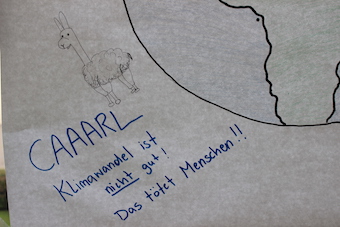 CAAARL
Klimawandel ist
nicht gut!
Das tötet Menschen!!